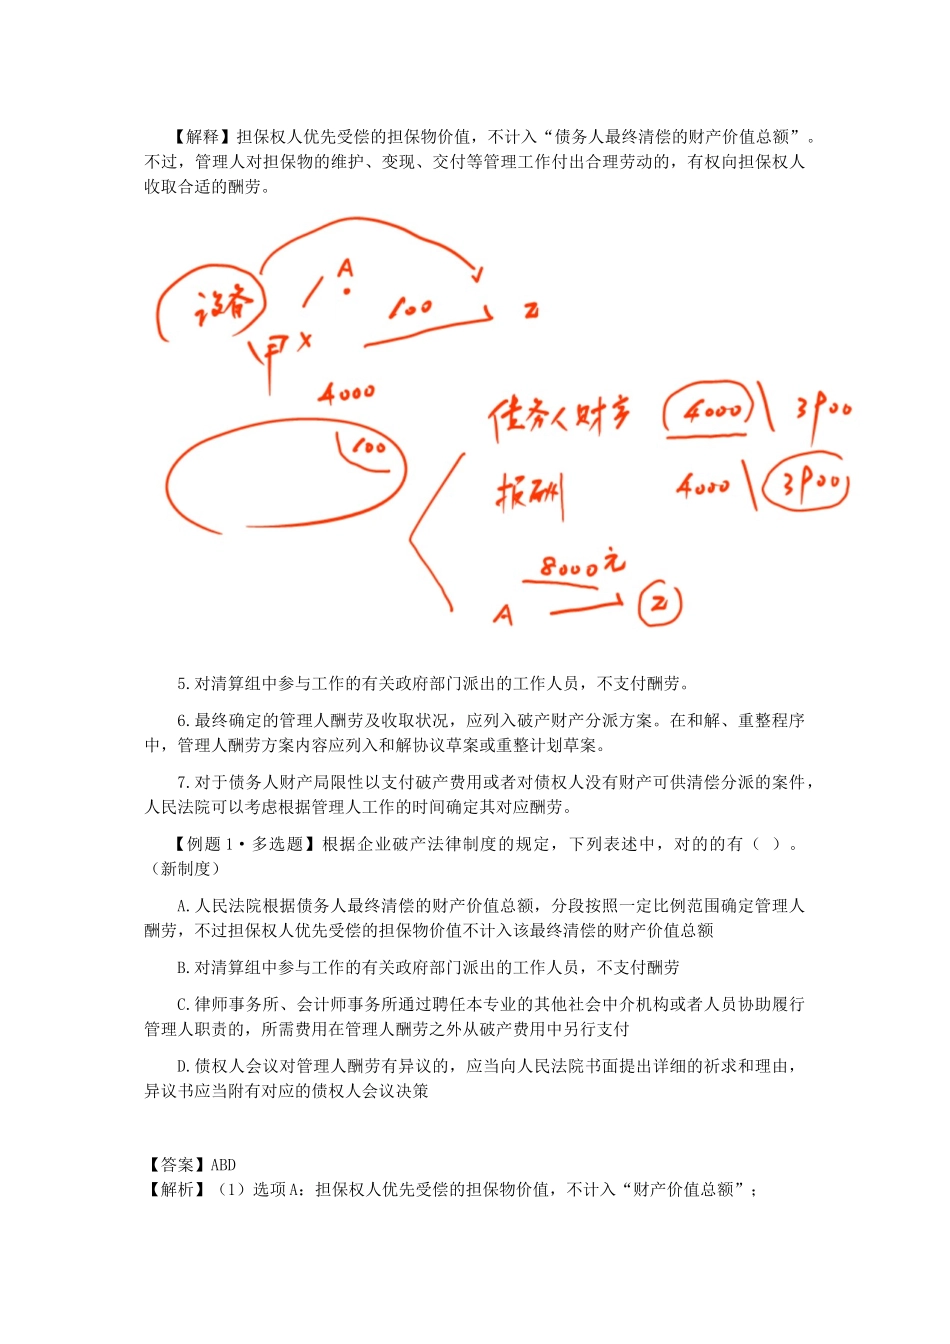 【解释】担保权人优先受偿的担保物价值，不计入“债务人最终清偿的财产价值总额”。
不过，管理人对担保物的维护、变现、交付等管理工作付出合理劳动的，有权向担保权人
收取合适的酬劳。
A
设备
100
Z
甲 X
4000
100
债务人财产 4000 \ 3900
报酬 4000 \ 3900
8000元
A
Z
5.对清算组中参与工作的有关政府部门派出的工作人员，不支付酬劳。
6.最终确定的管理人酬劳及收取状况，应列入破产财产分派方案。在和解、重整程序
中，管理人酬劳方案内容应列入和解协议草案或重整计划草案。
7.对于债务人财产局限性以支付破产费用或者对债权人没有财产可供清偿分派的案件，
人民法院可以考虑根据管理人工作的时间确定其对应酬劳。
【例题 1·多选题】根据企业破产法律制度的规定，下列表述中，对的的有（ ）。
（新制度）
A.人民法院根据债务人最终清偿的财产价值总额，分段按照一定比例范围确定管理人
酬劳，不过担保权人优先受偿的担保物价值不计入该最终清偿的财产价值总额
B.对清算组中参与工作的有关政府部门派出的工作人员，不支付酬劳
C.律师事务所、会计师事务所通过聘任本专业的其他社会中介机构或者人员协助履行
管理人职责的，所需费用在管理人酬劳之外从破产费用中另行支付
D.债权人会议对管理人酬劳有异议的，应当向人民法院书面提出详细的祈求和理由，
异议书应当附有对应的债权人会议决策
【答案】ABD
【解析】（1）选项 A：担保权人优先受偿的担保物价值，不计入“财产价值总额”；